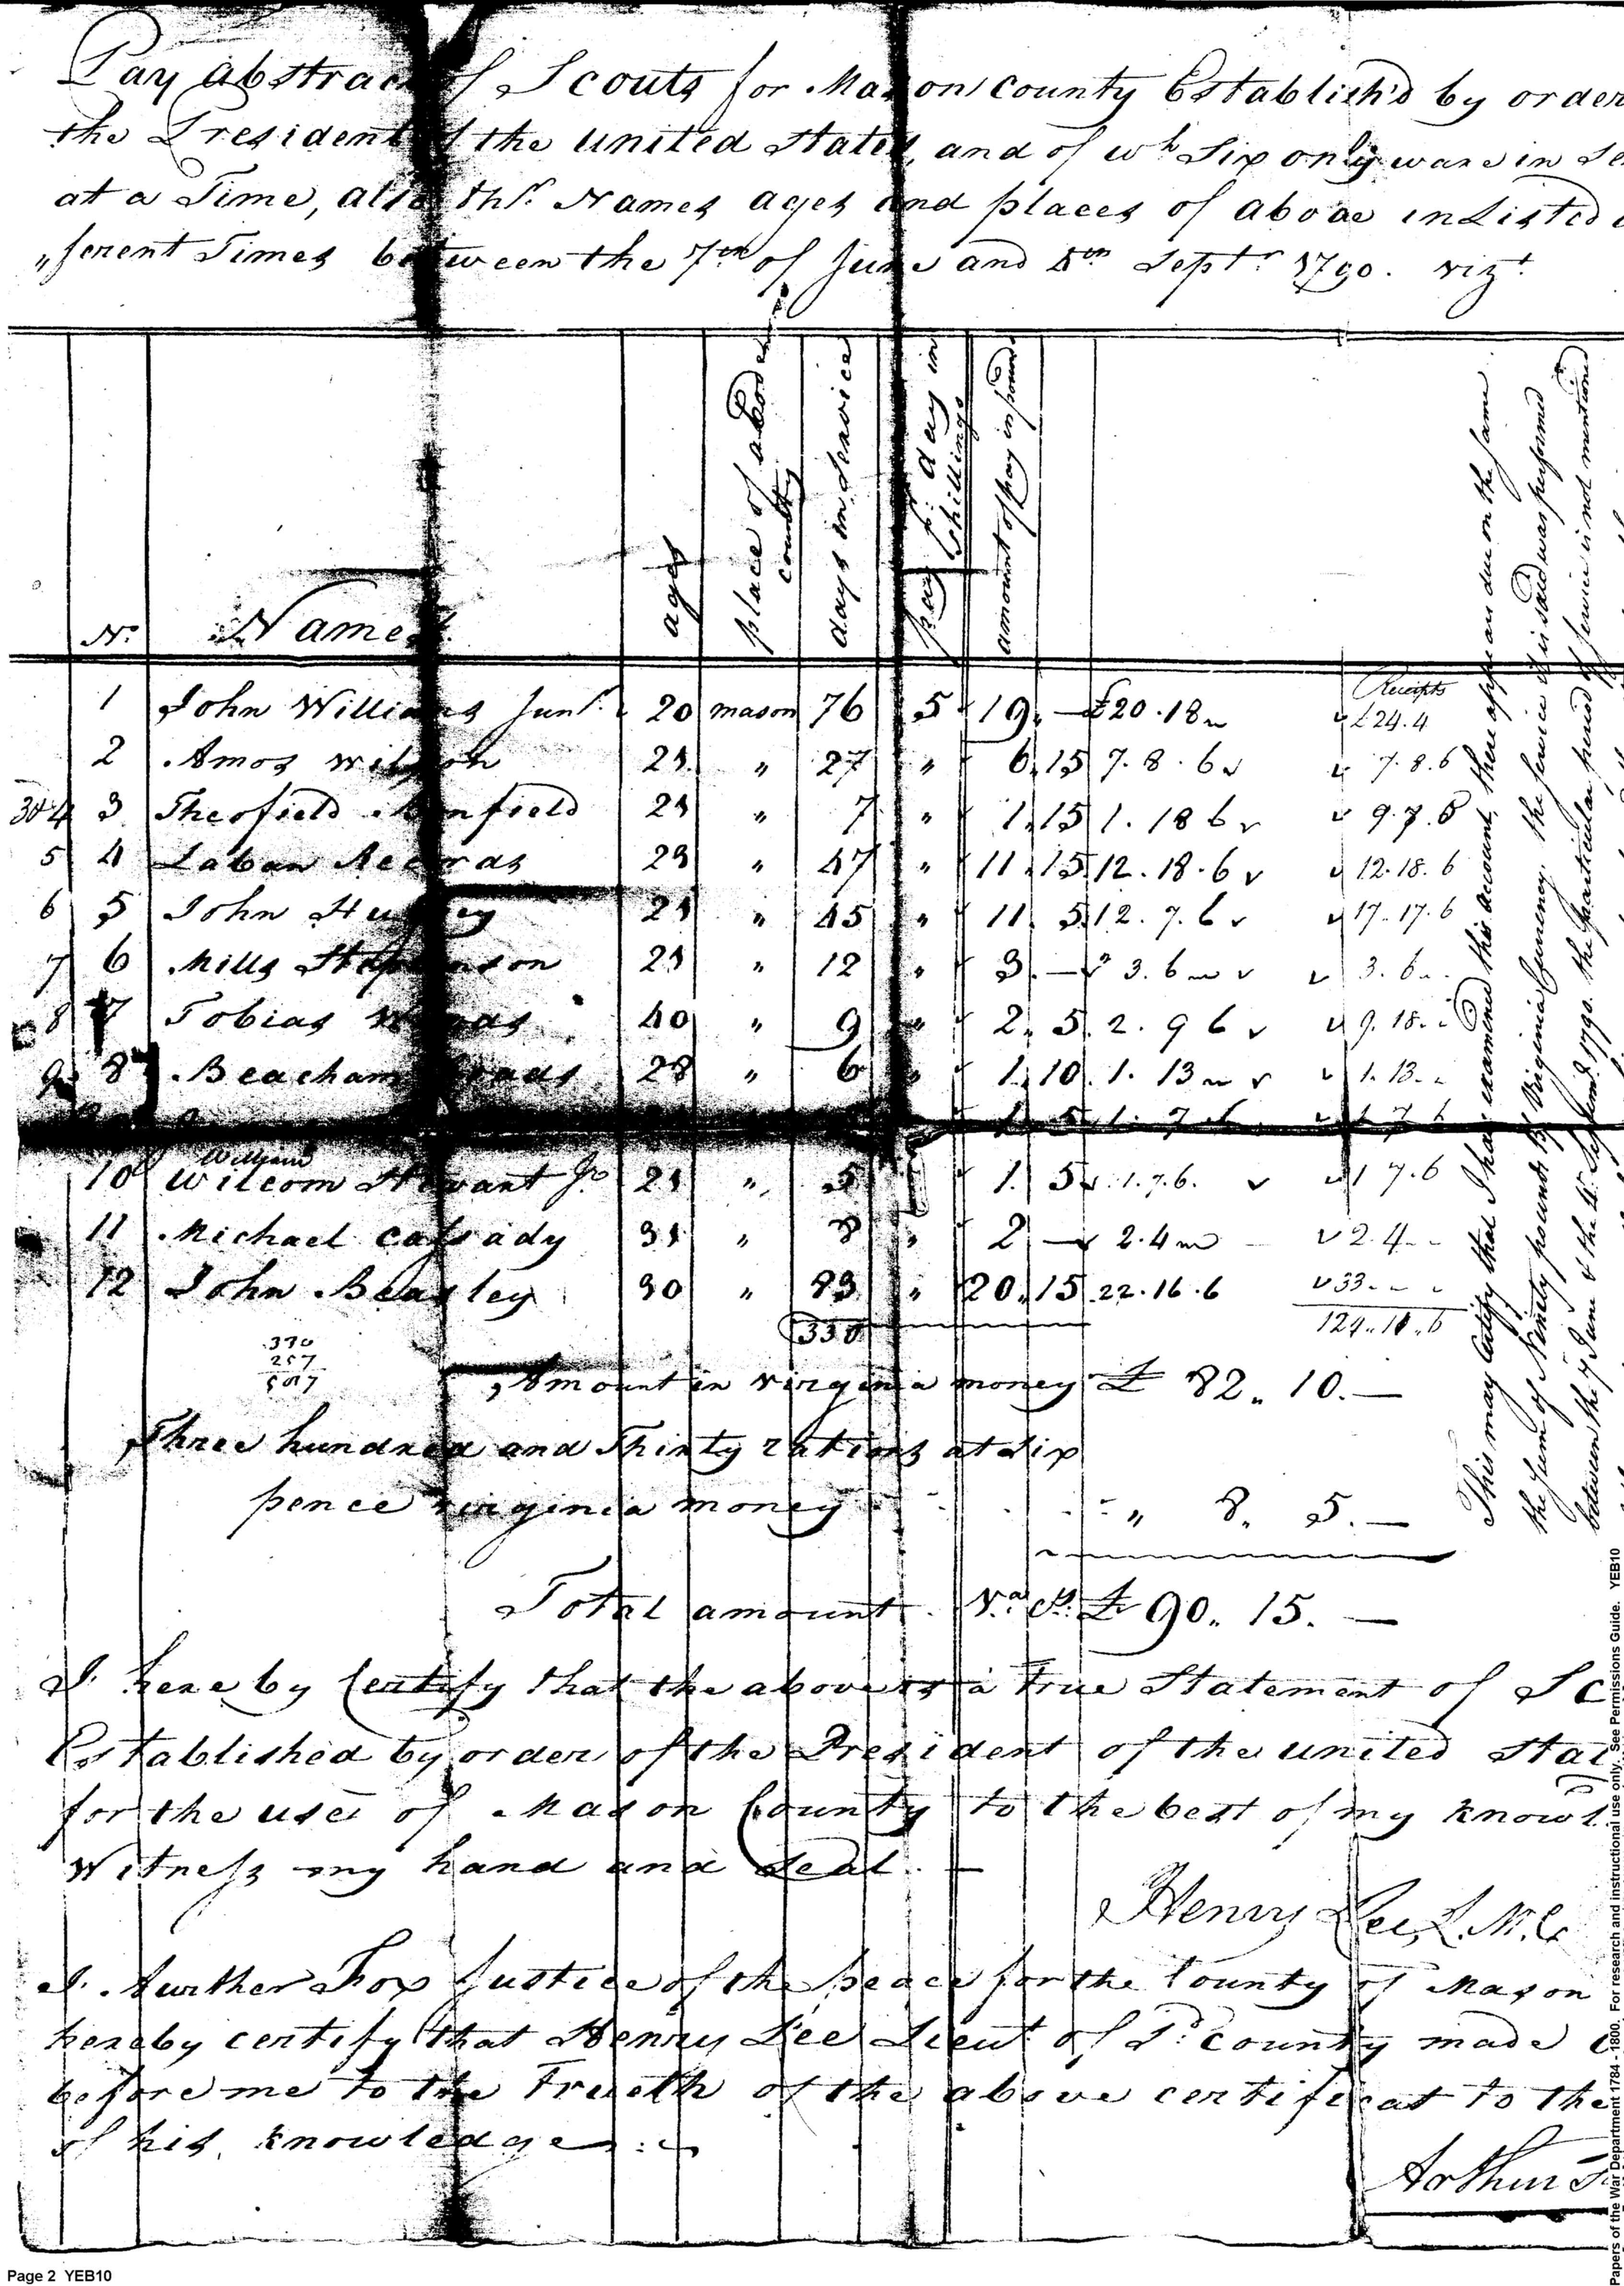 Pay Abstract of Scouts for Mason County Establish'd by order
the President of the united States, and of wh. Six only ware in Se
at a Time, also thr. Names ages and places of aboae inListed
"ferent Times between the 7th of June and 5th Septr. 1790. vizt.
No. Names ages place of abode county days in Service pay pr. day in shillings amount of pay in pounds
Receipts
1 John Williams Junr. 20 mason 76 5 19 — £20.18 £24.4
2 Amos Wilson 21 " 27 " 6 15 7.8.6 7.8.6
3 & 4 3 Theofield 21 " 7 " 1 15 1.18 6 9.7.6
5 4 Laban Records 23 " 47 " 11 15 12.18.6 12.18.6
6 5 John 21 " 45 " 11 5 12.7.6 17.17.6
7 6 Mills Stephenson 21 " 12 " 3 — 3.6 3.6
8 7 Tobias Woods 40 " 9 " 2 5 2.9 6 9.18
9 8 Beacham 28 " 6 " 1 10 1.13 1.13
1 5 1.7.6 1 7 6
William
10 Wilcom Stewart Jr. 21 " 5 1 5 1.7.6. 1 7.6
11 Michael Cassady 31 " 8 " 2 — 2.4 2.4
12 John Beasley 30 " 83 " 20 15 22.16.6 33
330 124.18.6
330
257
Amount in virginia money £ 82. 10. —
Three hundred and Thirty rations at Six
pence virginia money " 8. 5. —
Total amount Va. Cy. £ 90. 15. —
I hereby Certify that the above is a True Statement of Sc
Established by order of the President of the united Stat
for the use of Mason County to the best of my knowl
Witness my hand and Seal —
Henry Lee, L. M. C.
I Aurther Fox Justice of the peace for the County of Mason
hereby certify that Henry Lee Lieut. of Sd. county made
before me to the Trueth of the above certificat to the
of his knowledge
Arthur
This may Certify that I have examined this account, there appears due on the same
the Sum of Ninety pounds 15/ Virginia Currency. the Service it is said was performed
between the 7 June & the the particular period of service is not mentioned
Page 2 YEB10
Papers of the War Department 1784 - 1800. For research and instructional use only. See Permissions Guide. YEB10